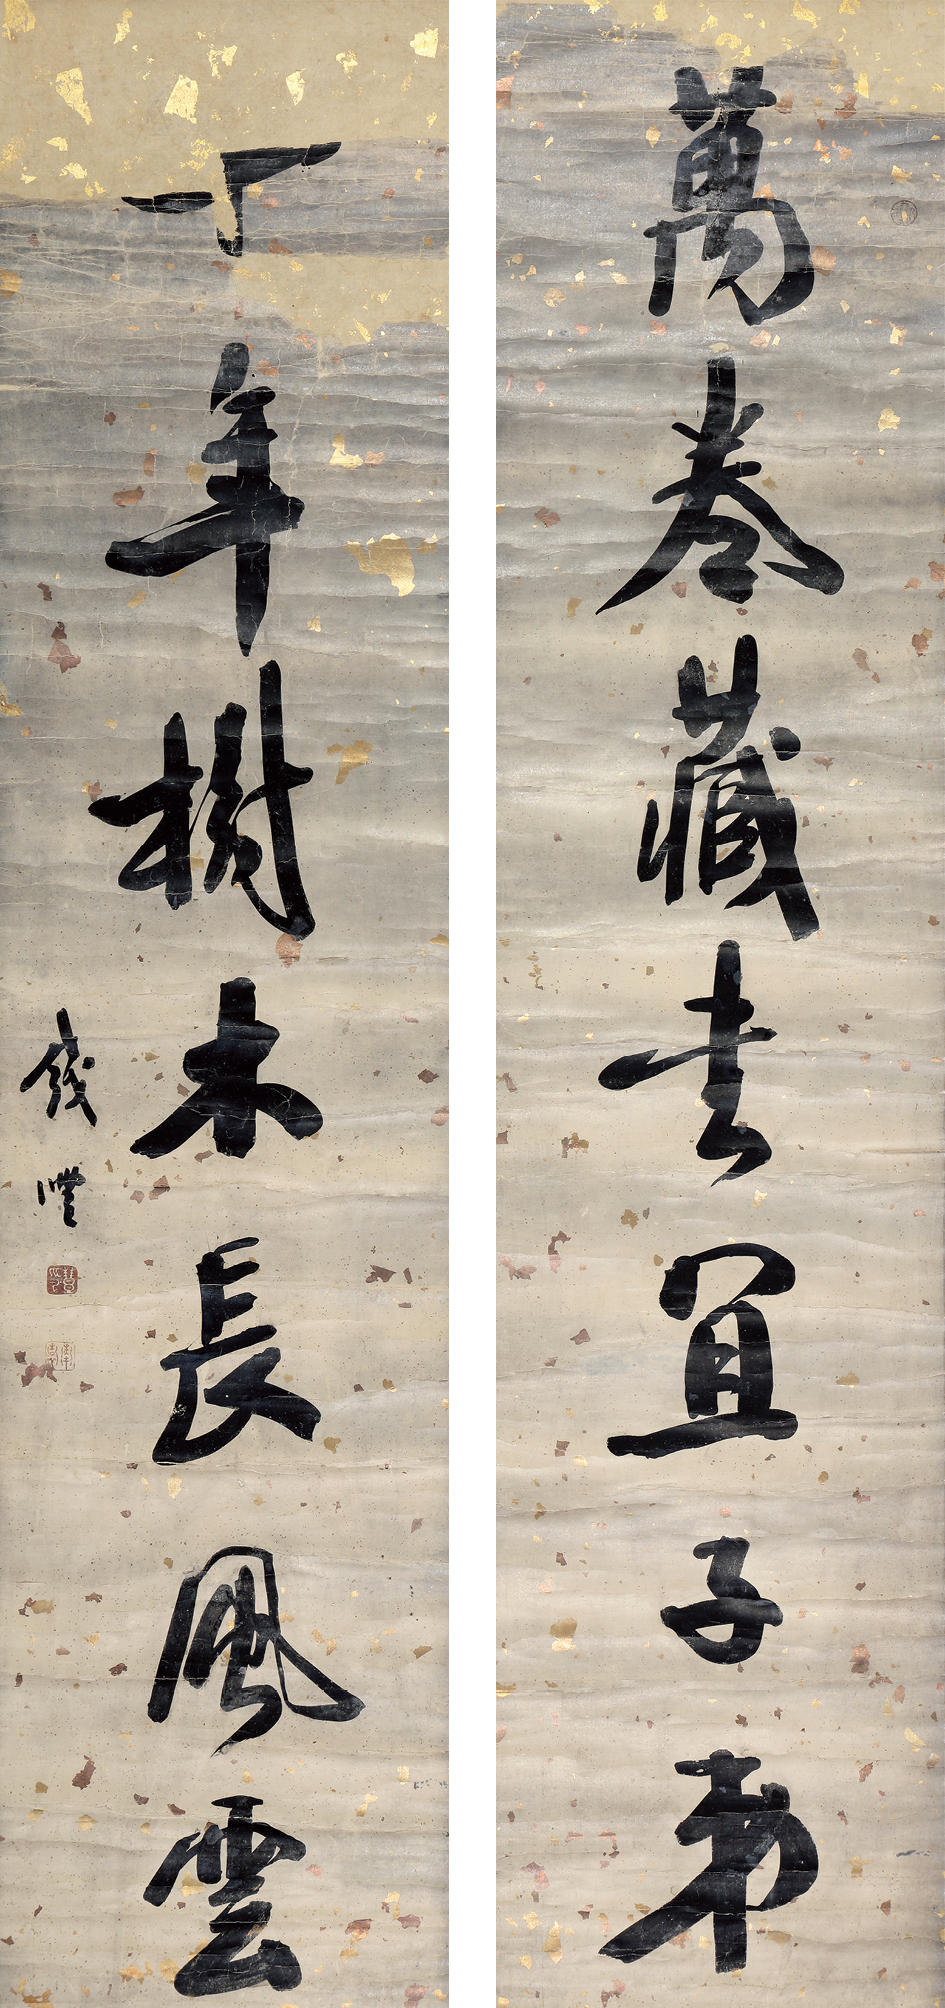 萬卷藏書宜子弟
十年樹木長風雲
錢灃